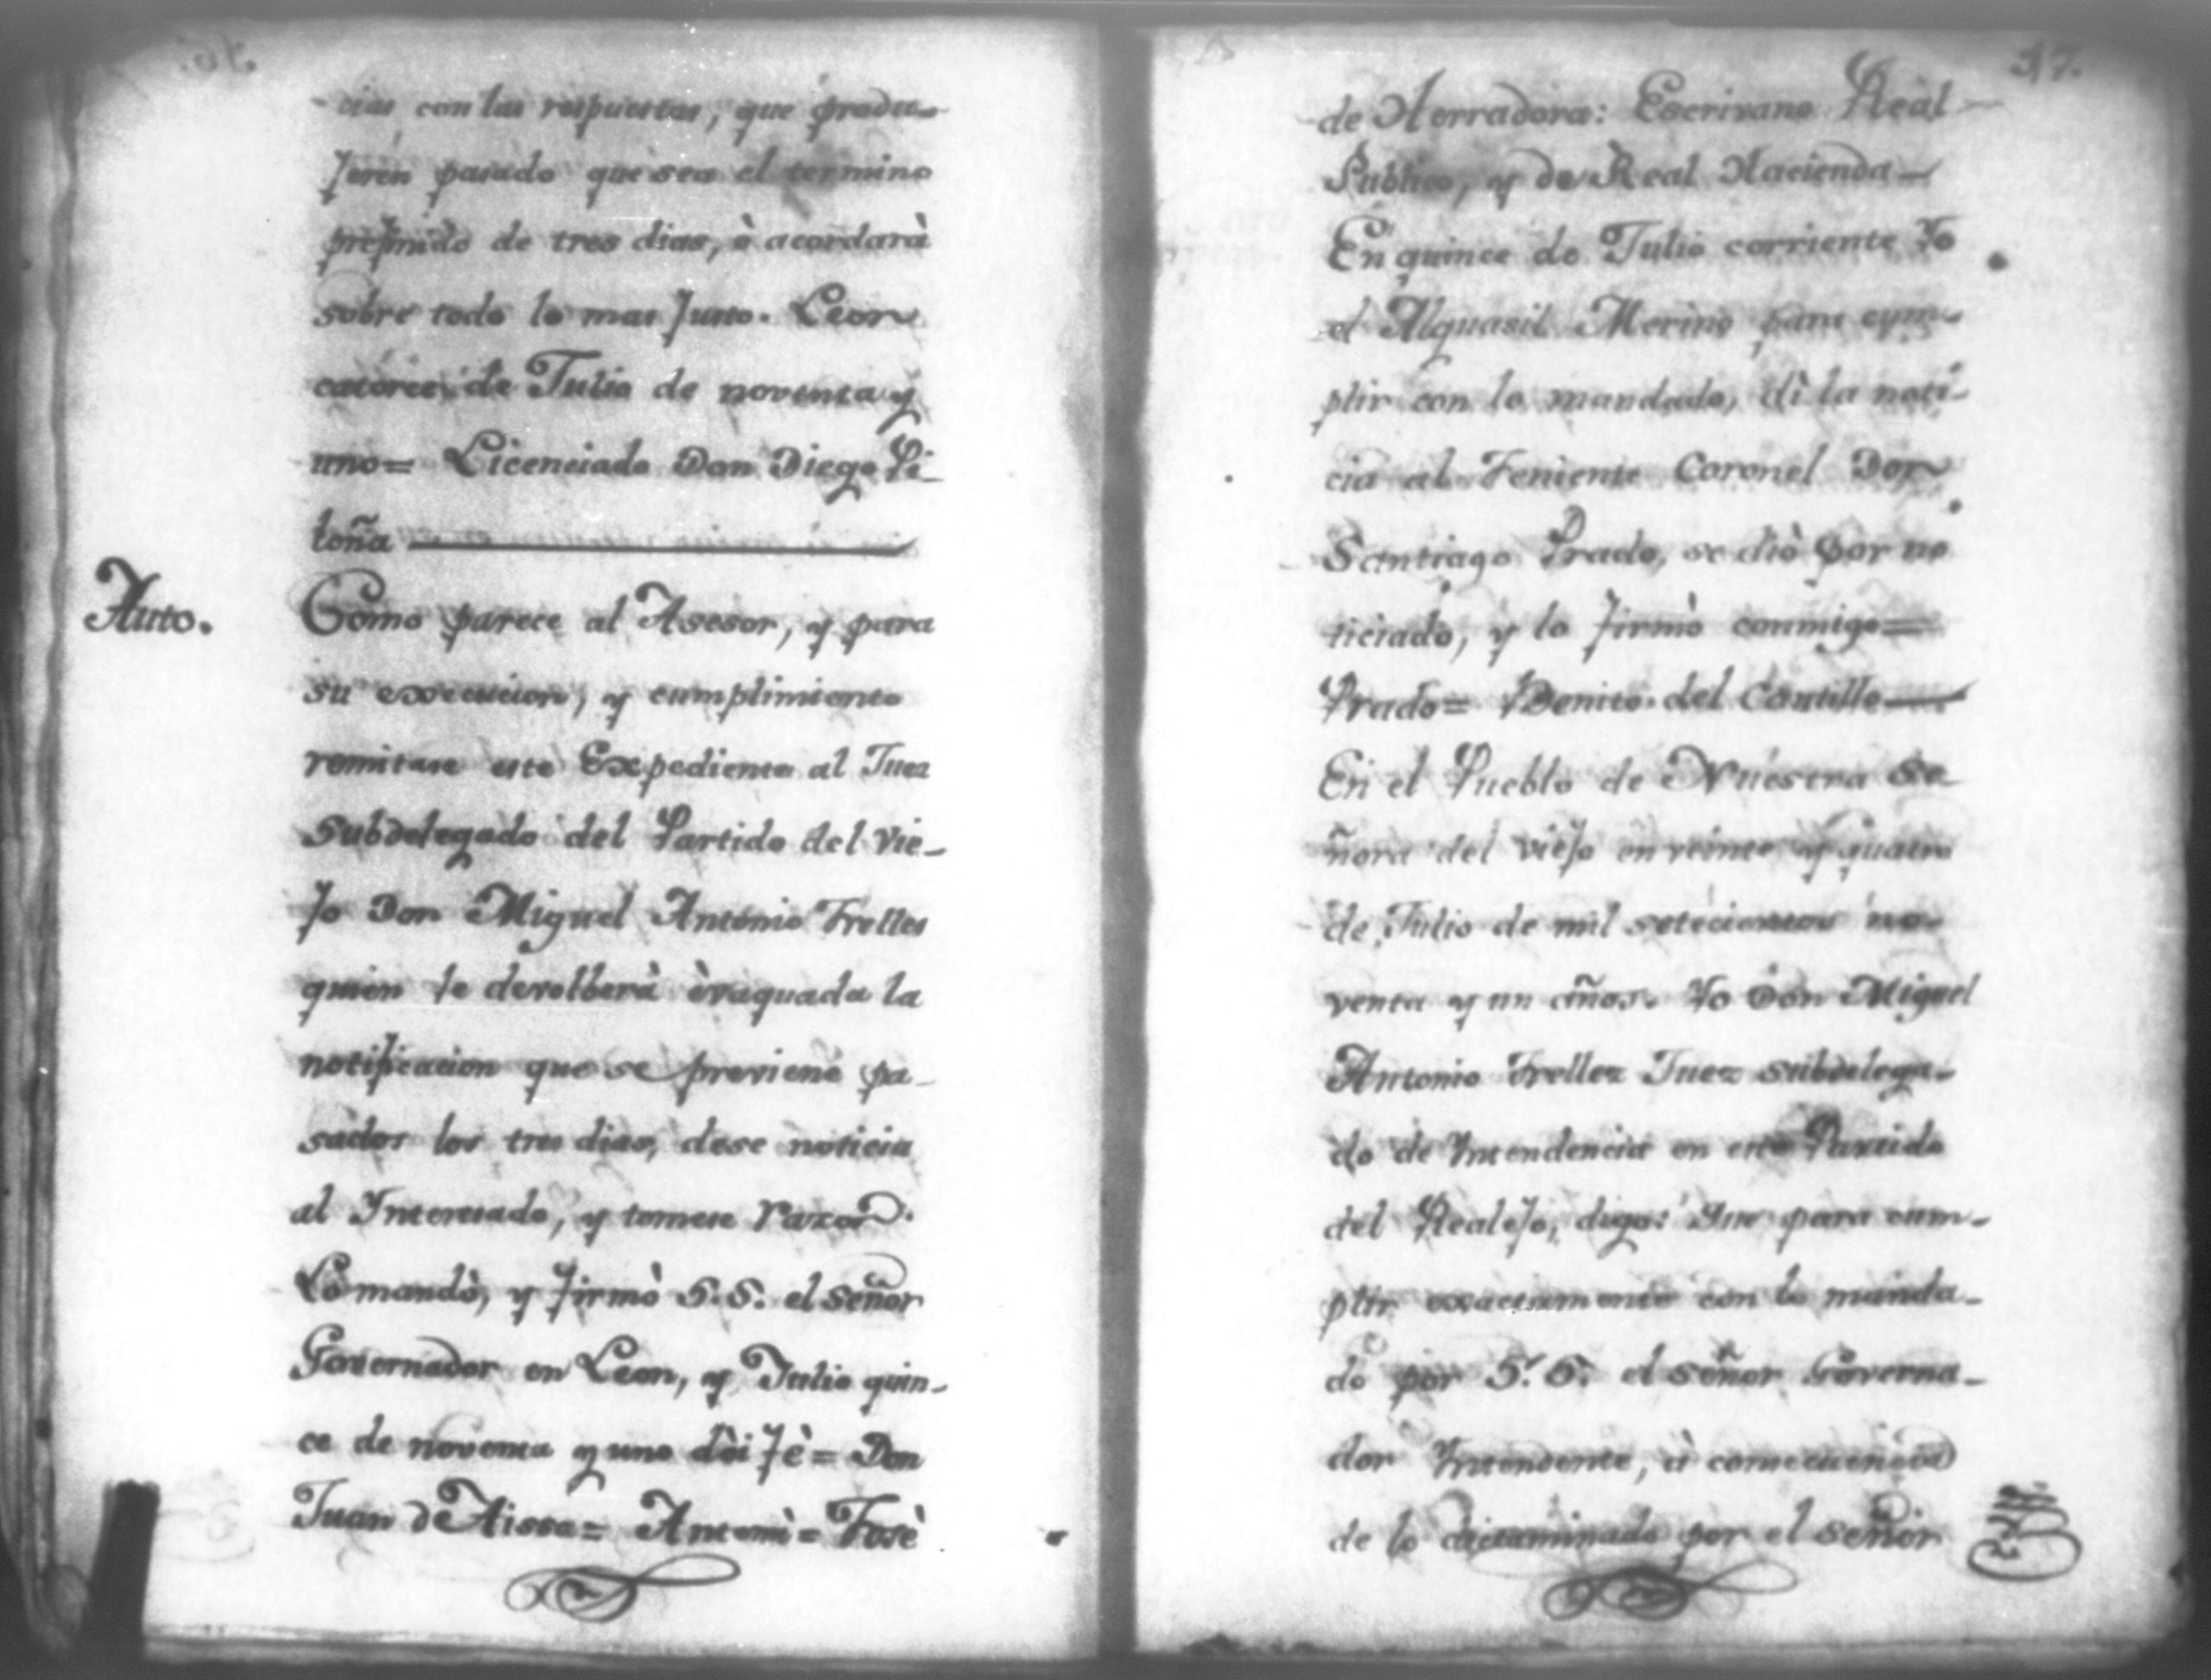 cias con las respuestas, que produ-
jeren pasado que sea el termino
prefinido de tres dias, è acordarà
sobre todo lo mas justo. Leon
catorce de Julio de noventa y
uno= Licenciado Don Diego Pi-
loña
Auto.
Como parece al Asesor, y para
su execucion, y cumplimiento
remitase este Expediente al Juez
subdelegado del Partido del Vie-
jo Don Miguel Antonio Trelles
quien le devolberà èvaquada la
notificacion que se previene pa-
sados los tres dias, dese noticia
al Interesado, y tomese razon.
Lo mandò, y firmò S. S. el señor
Governador en Leon, y Julio quin-
ce de noventa y uno dòi fè= Don
Juan de Aissa= Antemì= Josè
17.
de Herradora: Escrivano Real
Publico, y de Real Hacienda
En quince de Julio corriente Yo
el Alguasil Merino para cum-
plir con lo mandado, dì la noti-
cia al Teniente Coronel Don
Santiago Prado, se diò por no
ticiado, y lo firmò conmigo=
Prado= Benito del Castillo
En el Pueblo de Nuestra Se-
ñora del viejo en veinte y quatro
de Julio de mil setecientos no-
venta y un años. Yo Don Miguel
Antonio Trellez Juez subdelega-
do de Yntendencia en este Partido
del Realejo, digo: Que para cum-
plir exactamente con lo manda-
do por S. S. el señor Governa-
dor Yntendente, à consecuencia
de lo dictaminado por el señor